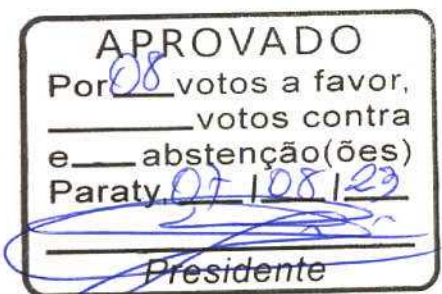 APROVADO
Por 08 votos a favor,
votos contra
e abstenção(ões)
Paraty, 07 / 08 / 23
Presidente